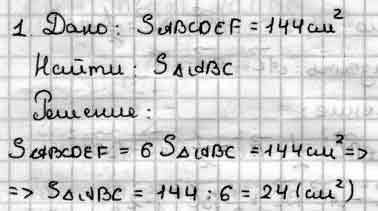 1. Дано: SABCDEF = 144 см²
Найти: S△ABC
Решение:
SABCDEF = 6 S△ABC = 144 см² =>
=> S△ABC = 144 : 6 = 24 (см²)